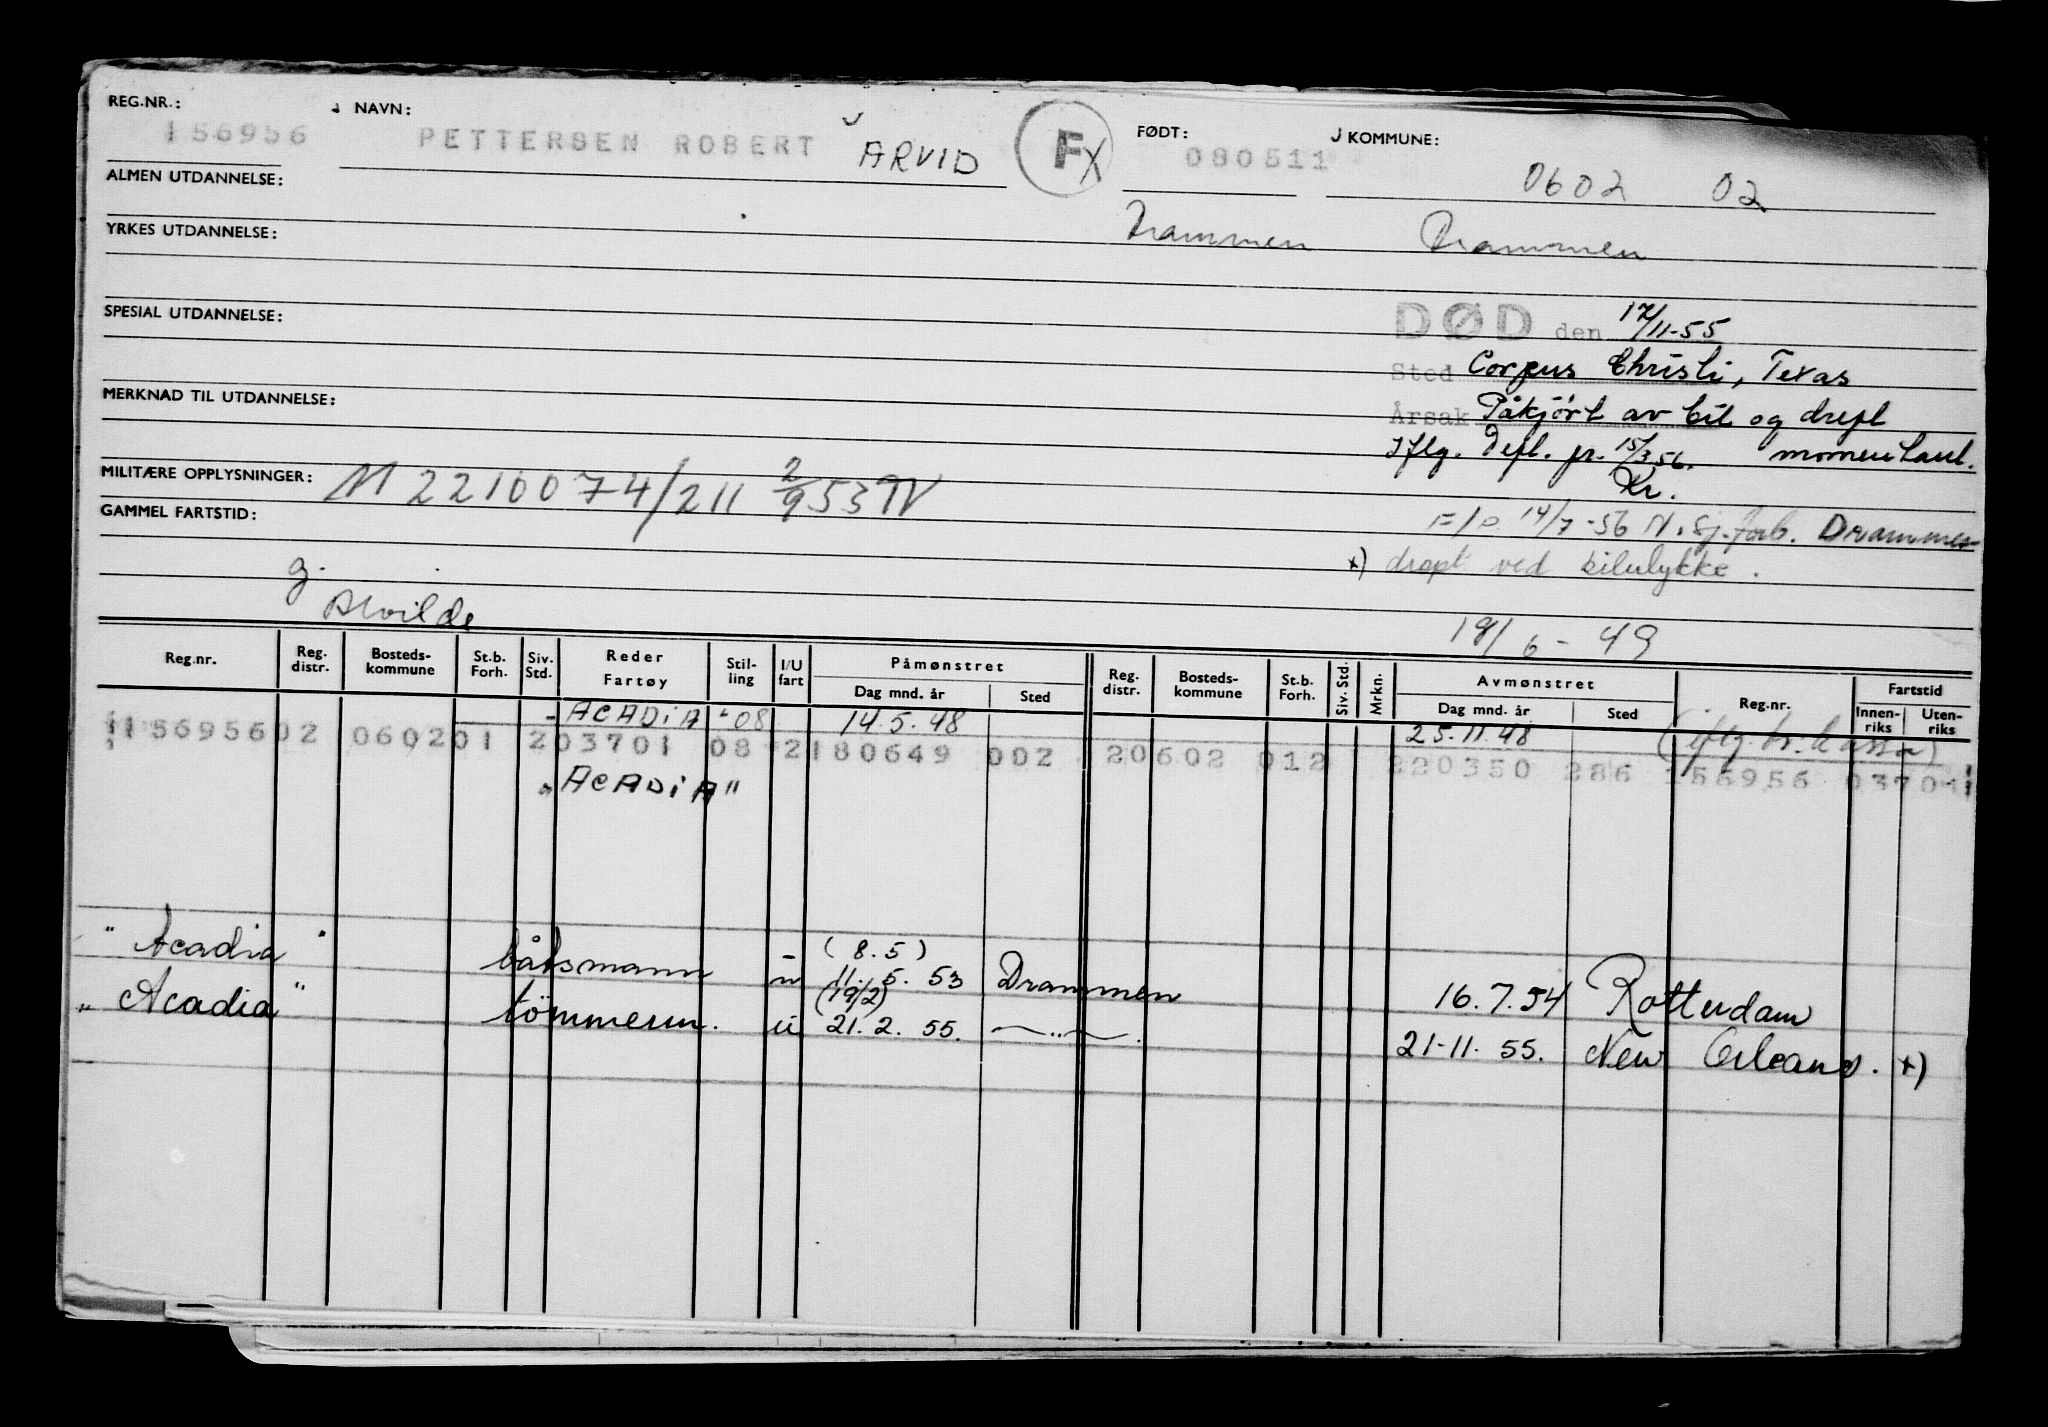 REG.NR.: NAVN: FØDT: KOMMUNE:
156956 PETTERSEN ROBERT ARVID FX 080511 0602 02
ALMEN UTDANNELSE:
Drammen Drammen
YRKES UTDANNELSE:
SPESIAL UTDANNELSE:
DØD den 17/11-55
Sted Corpus Christi, Texas
MERKNAD TIL UTDANNELSE:
Årsak Påkjört av bil og drept
momentant.
Iflg. Defl. pr. 15/3 56.
Kr.
MILITÆRE OPPLYSNINGER: M 2210074/211 2/9 53
GAMMEL FARTSTID:
14/7-56 N. Sj.forb. Drammen
x) drept ved bilulykke.
g.
Alvilde
18/6-49
Reg.nr. Reg. distr. Bosteds-kommune St.b. Forh. Siv. Std. Reder Fartøy Stil-ling I/U fart Påmønstret Dag mnd. år Sted Reg. distr. Bosteds-kommune St.b. Forh. Siv. Std. Mrkn. Avmønstret Dag mnd. år Sted Reg.nr. Fartstid Innen-riks Uten-riks
- ACADIA "08 14.5.48 25.11.48 (iflg. tr. kassa)
15695602 060201 203701 08 2180649 002 20602 012 220350 286 156956 03701
"ACADIA"
"Acadia" båtsmann u (8.5) 11.5.53 Drammen 16.7.54 Rotterdam
"Acadia" tömmerm. u (19/2) 21.2.55. —..—. 21-11.55. New Orleans. x)